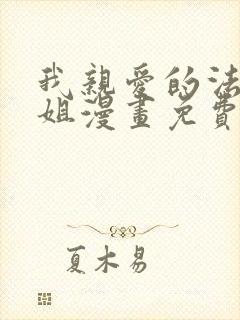 我親愛的法
姐漫畫免費
夏木易